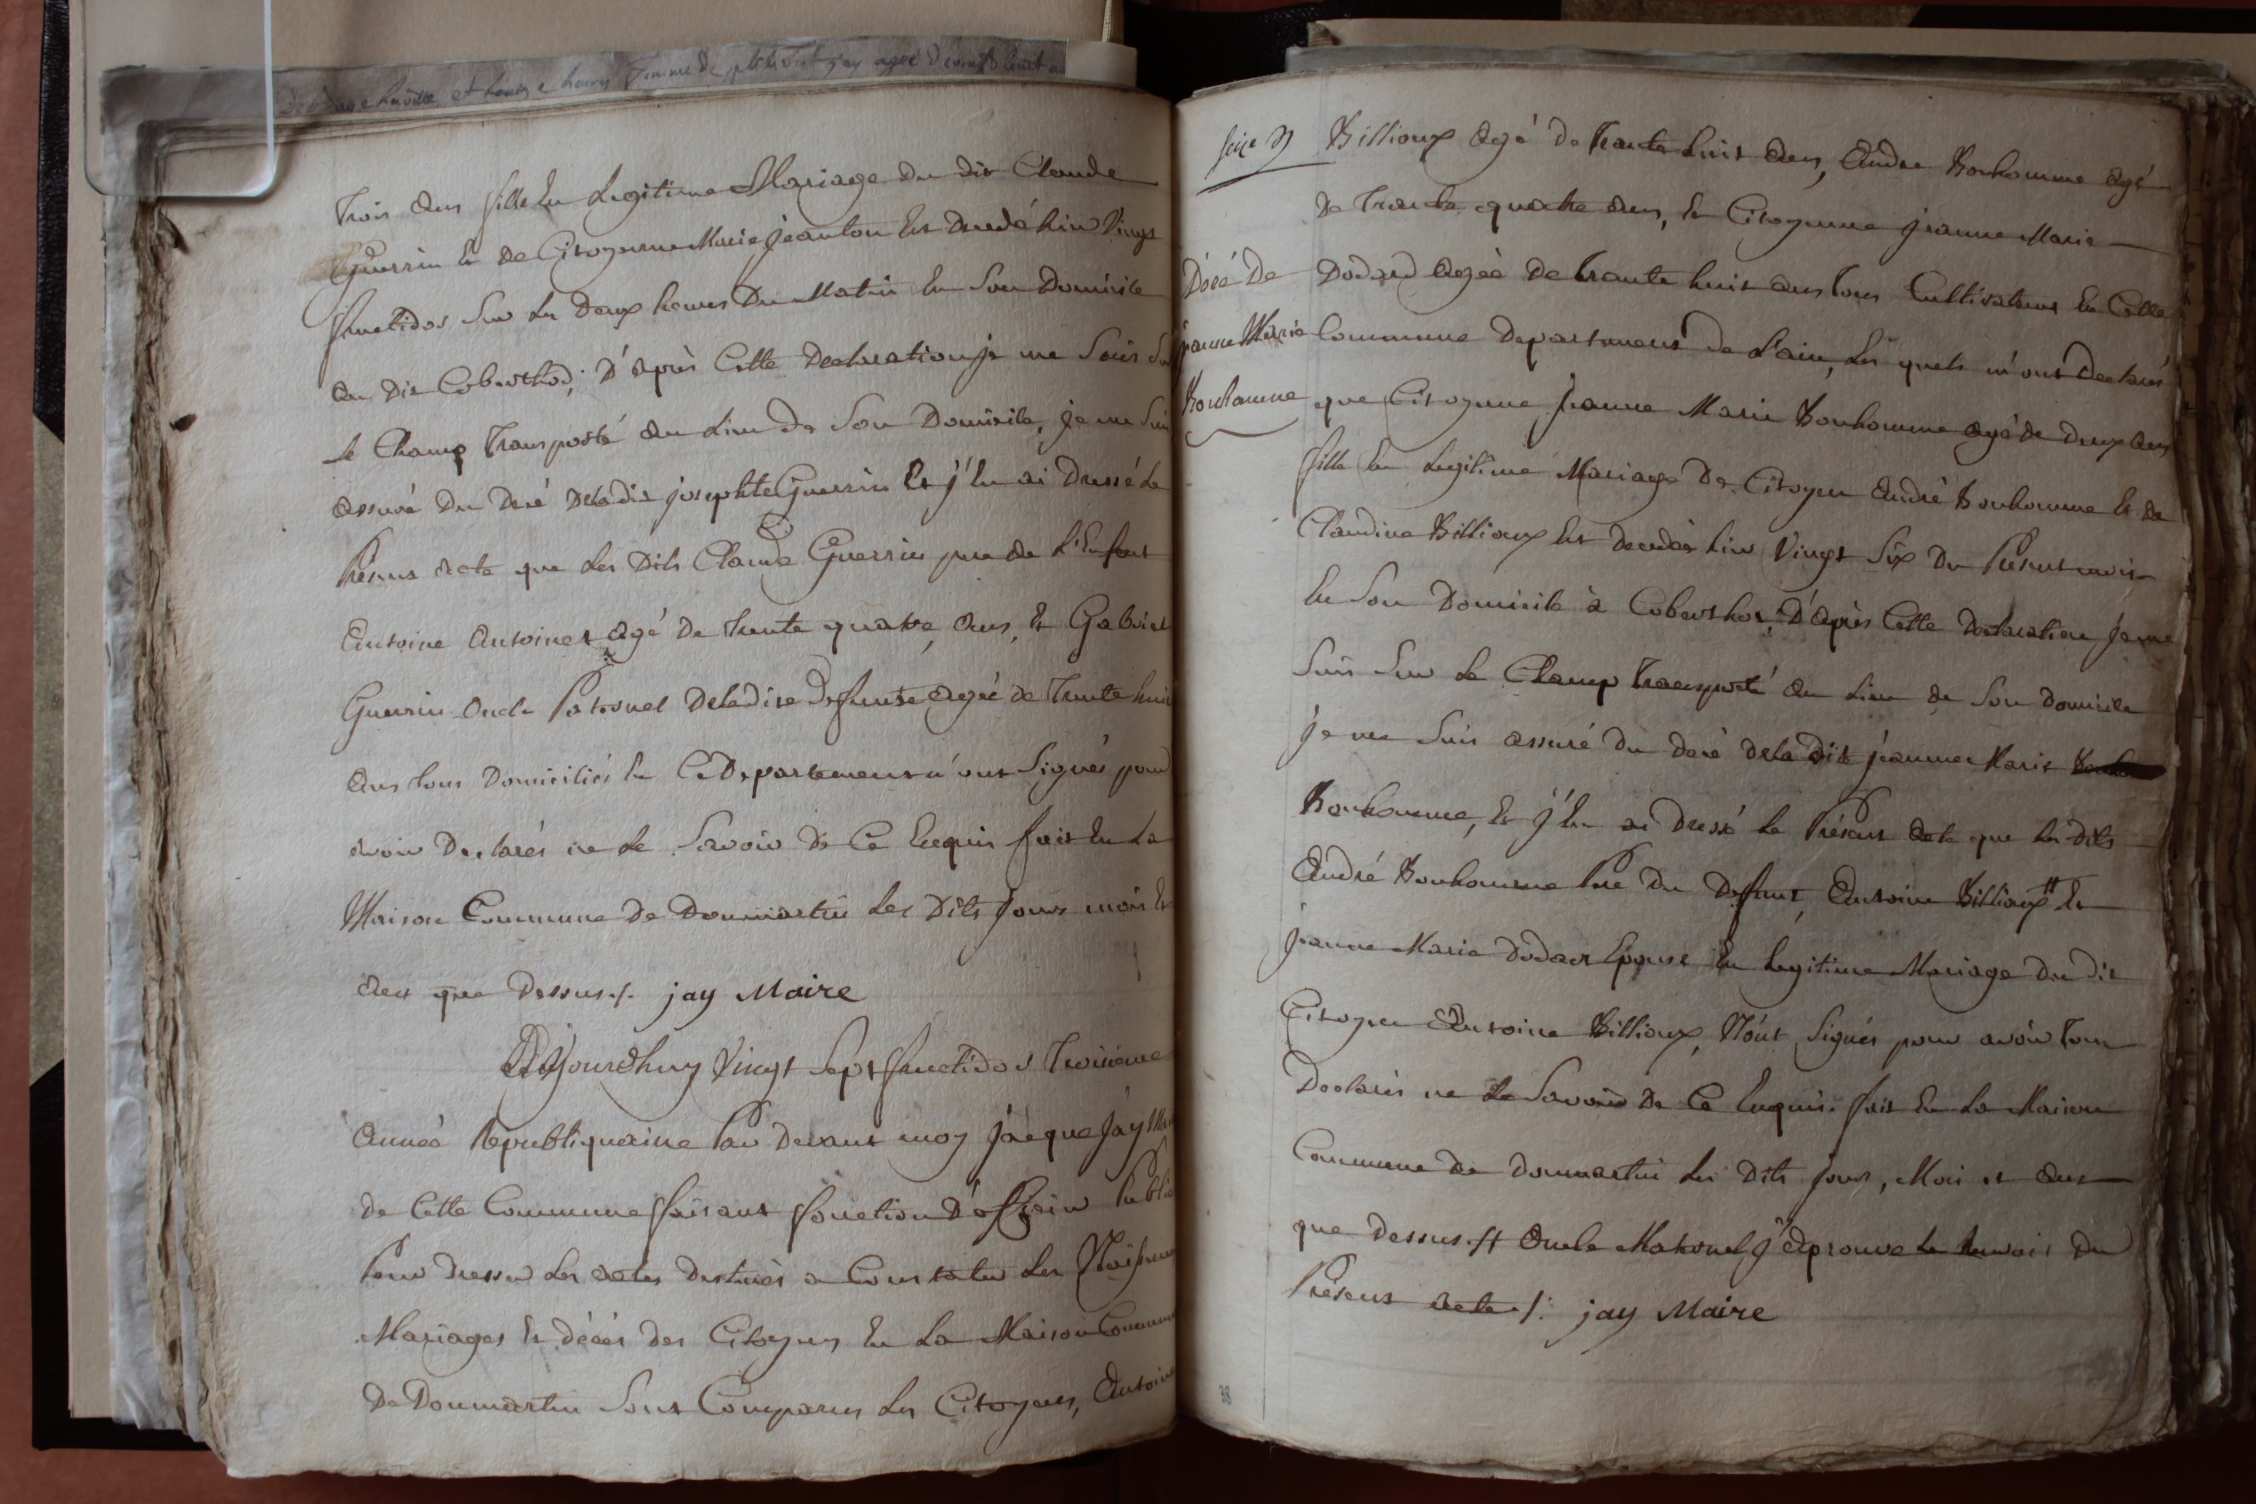 trois ans fille En Legitime Mariage du dit Claude
Guerrin Et de Citoyenne Marie jeanton Est Decedé hier Vingt
fructidor Sur Les Deux heures Du Matin En Son Domicile
au Dit Coberthod; D'après Cette Declaration je me Suis Sur
le Champ Transporté au Lieu de Son Domicile, je me Suis
assuré Du Décé Deladit josephte Guerrin Et j'En ai Dressé Le
Présent acte que Les Dits Claude Guerrin pere de L'Enfant
Antoine Antoinet agé De Trente quatre, ans, Et Gabriel
Guerrin Oncle Paternel Deladite Defunte agée de Trente huit
ans tous Domiciliés En Ce Departement n'ont Signés pour
avoir Declarés ne Le Savoir De Ce Enquis fait En La
Maison Commune De Dommartin Les Dits Jours mois Et
ans que Dessus./. jay Maire
Aujourdhuy Vingt Sept fructidor Troisieme
Année Republiquaine Par Devant moy Jacque Jay Maire
de Cette Commune faisant fonction D'officier Public
Pour Dresser Les actes Destinés a Constater Les Naissances
Mariages Et décés des Citoyens En La Maison Commune
De Dommartin Sont Comparus Les Citoyens, Antoine
Billioux agé De Trante huit ans, Andre Bonhomme agé
De Trante quatre ans, Et Citoyenne jeanne Marie
Dodard agéé De trante huit ans tous Cultivateurs En Cette
Commune Departement de Lain, Les quels m'ont Declarés
que Citoyenne Jeanne Marie Bonhomme agé de Deux ans
fille En Legitime Mariage De Citoyen André Bonhomme Et de
Claudine Billioux Est Decedée hier Vingt Six Du Présent mois
En Son Domicile à Coberthod, D'après Cette Declaration Je me
Suis Sur Le Champ Transporté au Lieu de Son Domicile
je me Suis assuré Du décé dela Dite jeanne Marie
Bonhomme, Et j'En ai Dressé Le Présent acte que Les Dits
André Bonhomme Pere Du Defunt, Antoine Billioux # Et
jeanne Marie Dodard Epouse En Legitime Mariage Du Dit
Citoyen Antoine Billioux, N'ont Signés pour avoir Tous
Declarés ne Le Savoir De Ce Enquis. fait En La Maison
Commune De Dommartin Les Dits jour, Mois et ans
que Dessus./. # Oncle Maternel j'aprouve Le Renvoi Du
Présent acte ./. jay Maire
Décé De
jeanne Marie
Bonhomme
38